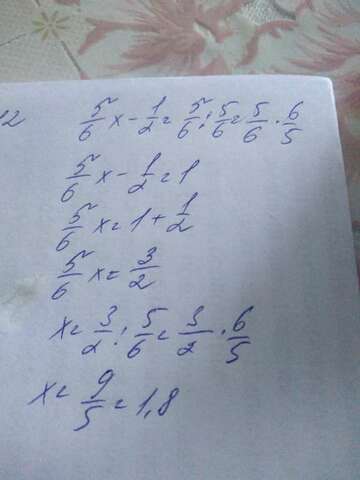 12 5/6 x - 1/2 = 5/6 : 5/6 = 5/6 · 6/5
5/6 x - 1/2 = 1
5/6 x = 1 + 1/2
5/6 x = 3/2
x = 3/2 : 5/6 = 3/2 · 6/5
x = 9/5 = 1,8